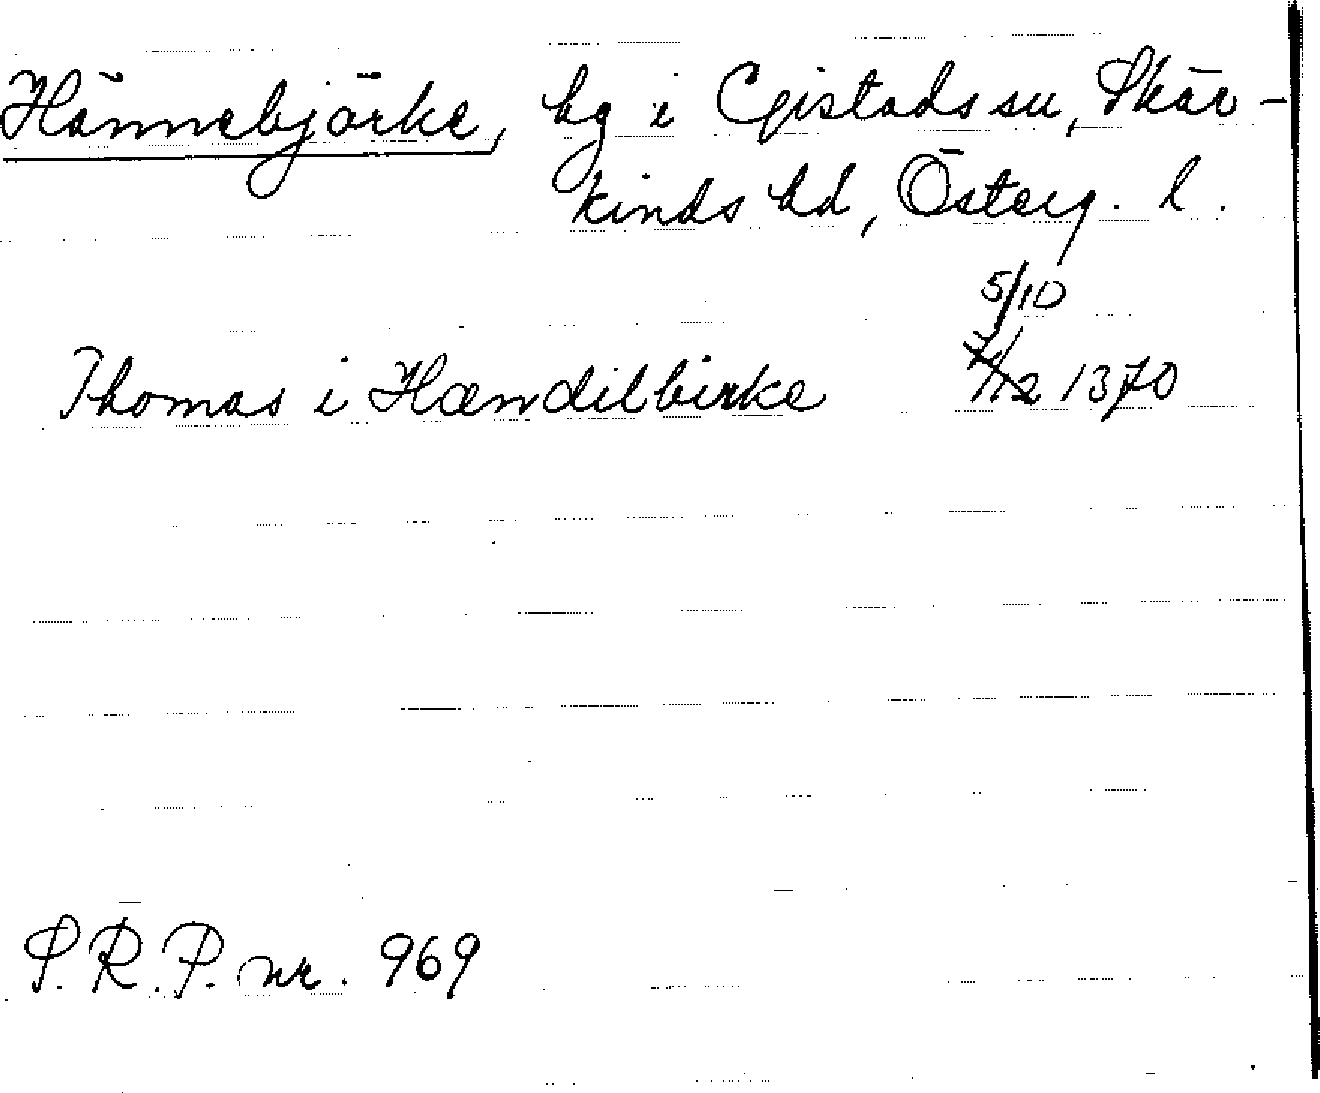 Hännebjörke, hg i Gistads sn, Skär-
kinds hd, Österg. l.
5/10
Thomas i Hændilbirke 1370
S.R.P. nr. 969